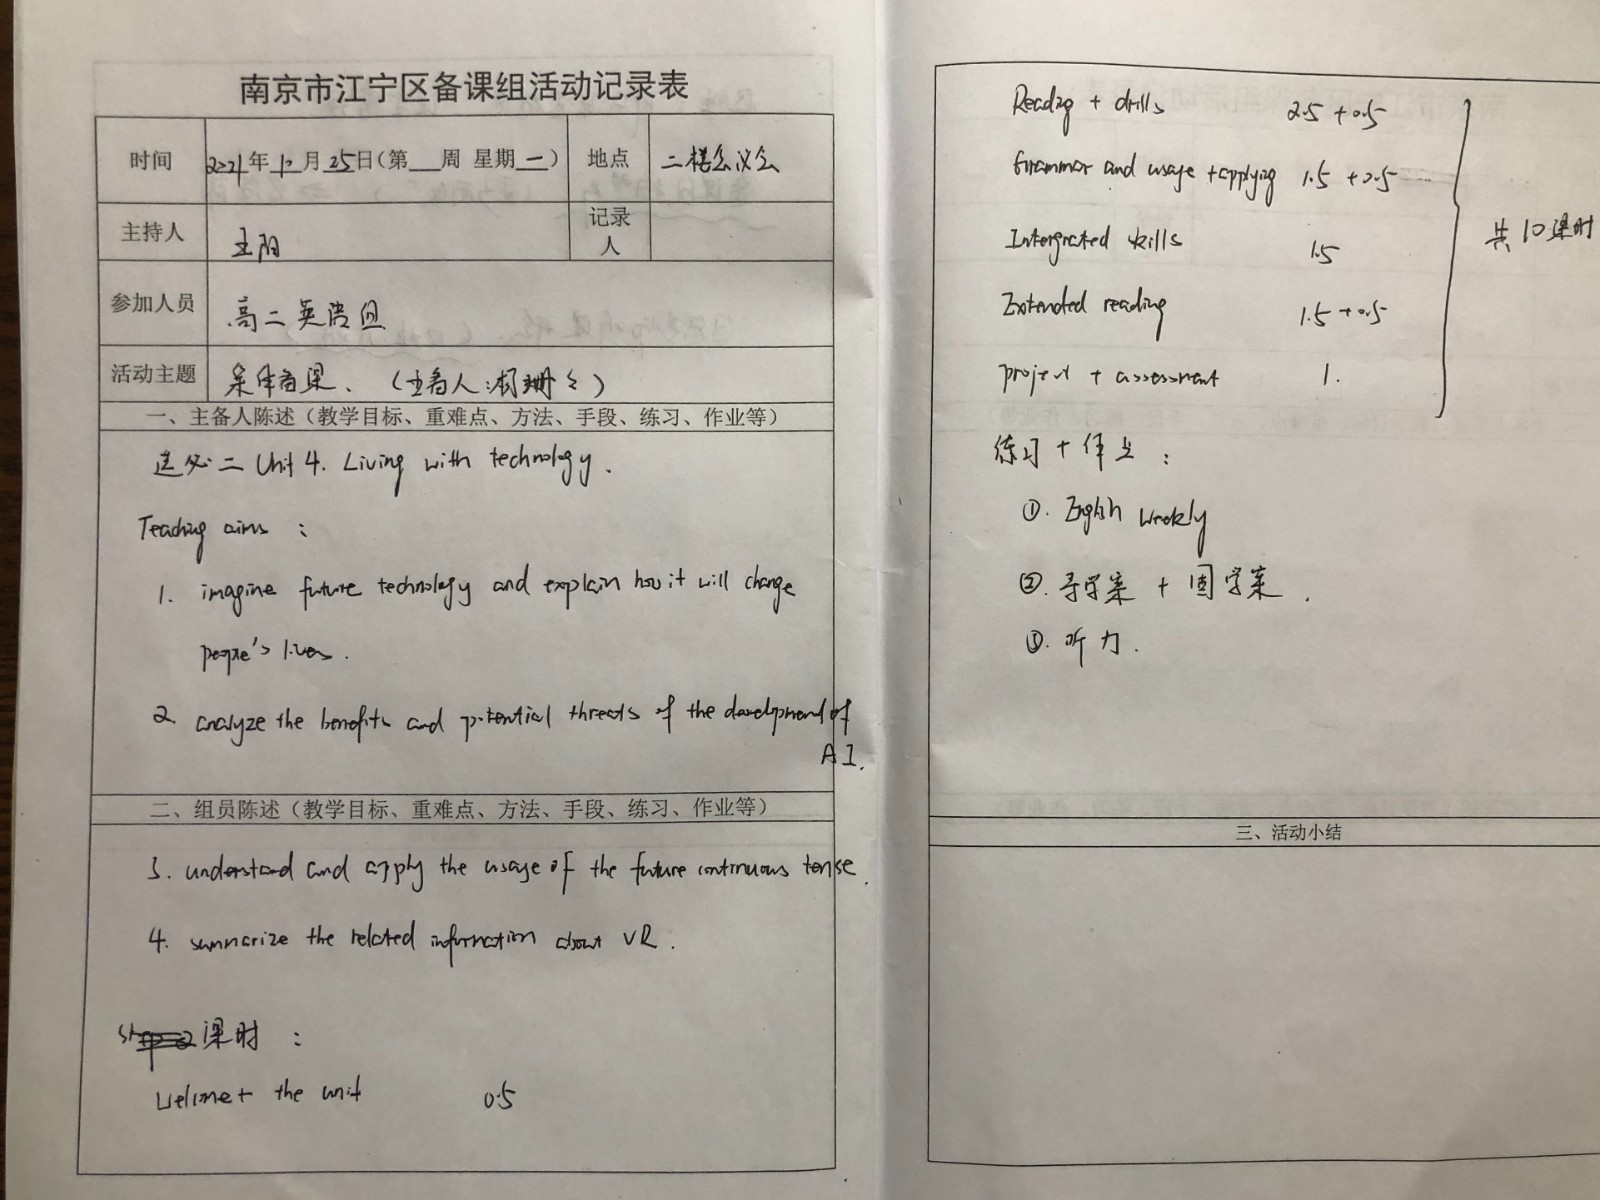 南京市江宁区备课组活动记录表
时间 2021年10月25日(第 周 星期一) 地点 二楼会议会
主持人 王阳 记录人
参加人员 高二英语组
活动主题 集体备课、(主备人:杨珊珊)
一、主备人陈述(教学目标、重难点、方法、手段、练习、作业等)
选必二 Unit 4. Living with technology.
Teaching aims :
1. imagine future technology and explain how it will change
people's lives.
2. analyze the benefits and potential threats of the development of
AI.
二、组员陈述(教学目标、重难点、方法、手段、练习、作业等)
3. understand and apply the usage of the future continuous tense.
4. summarize the related information about VR.
课时 :
Welcome to the unit 0.5
Reading + drills 2.5 + 0.5
Grammar and usage + applying 1.5 + 0.5
Intergrated skills 1.5
Extended reading 1.5 + 0.5
project + assessment 1.
共10课时
练习 + 作业 :
①. English Weekly
②. 导学案 + 固学案.
③. 听力.
三、活动小结